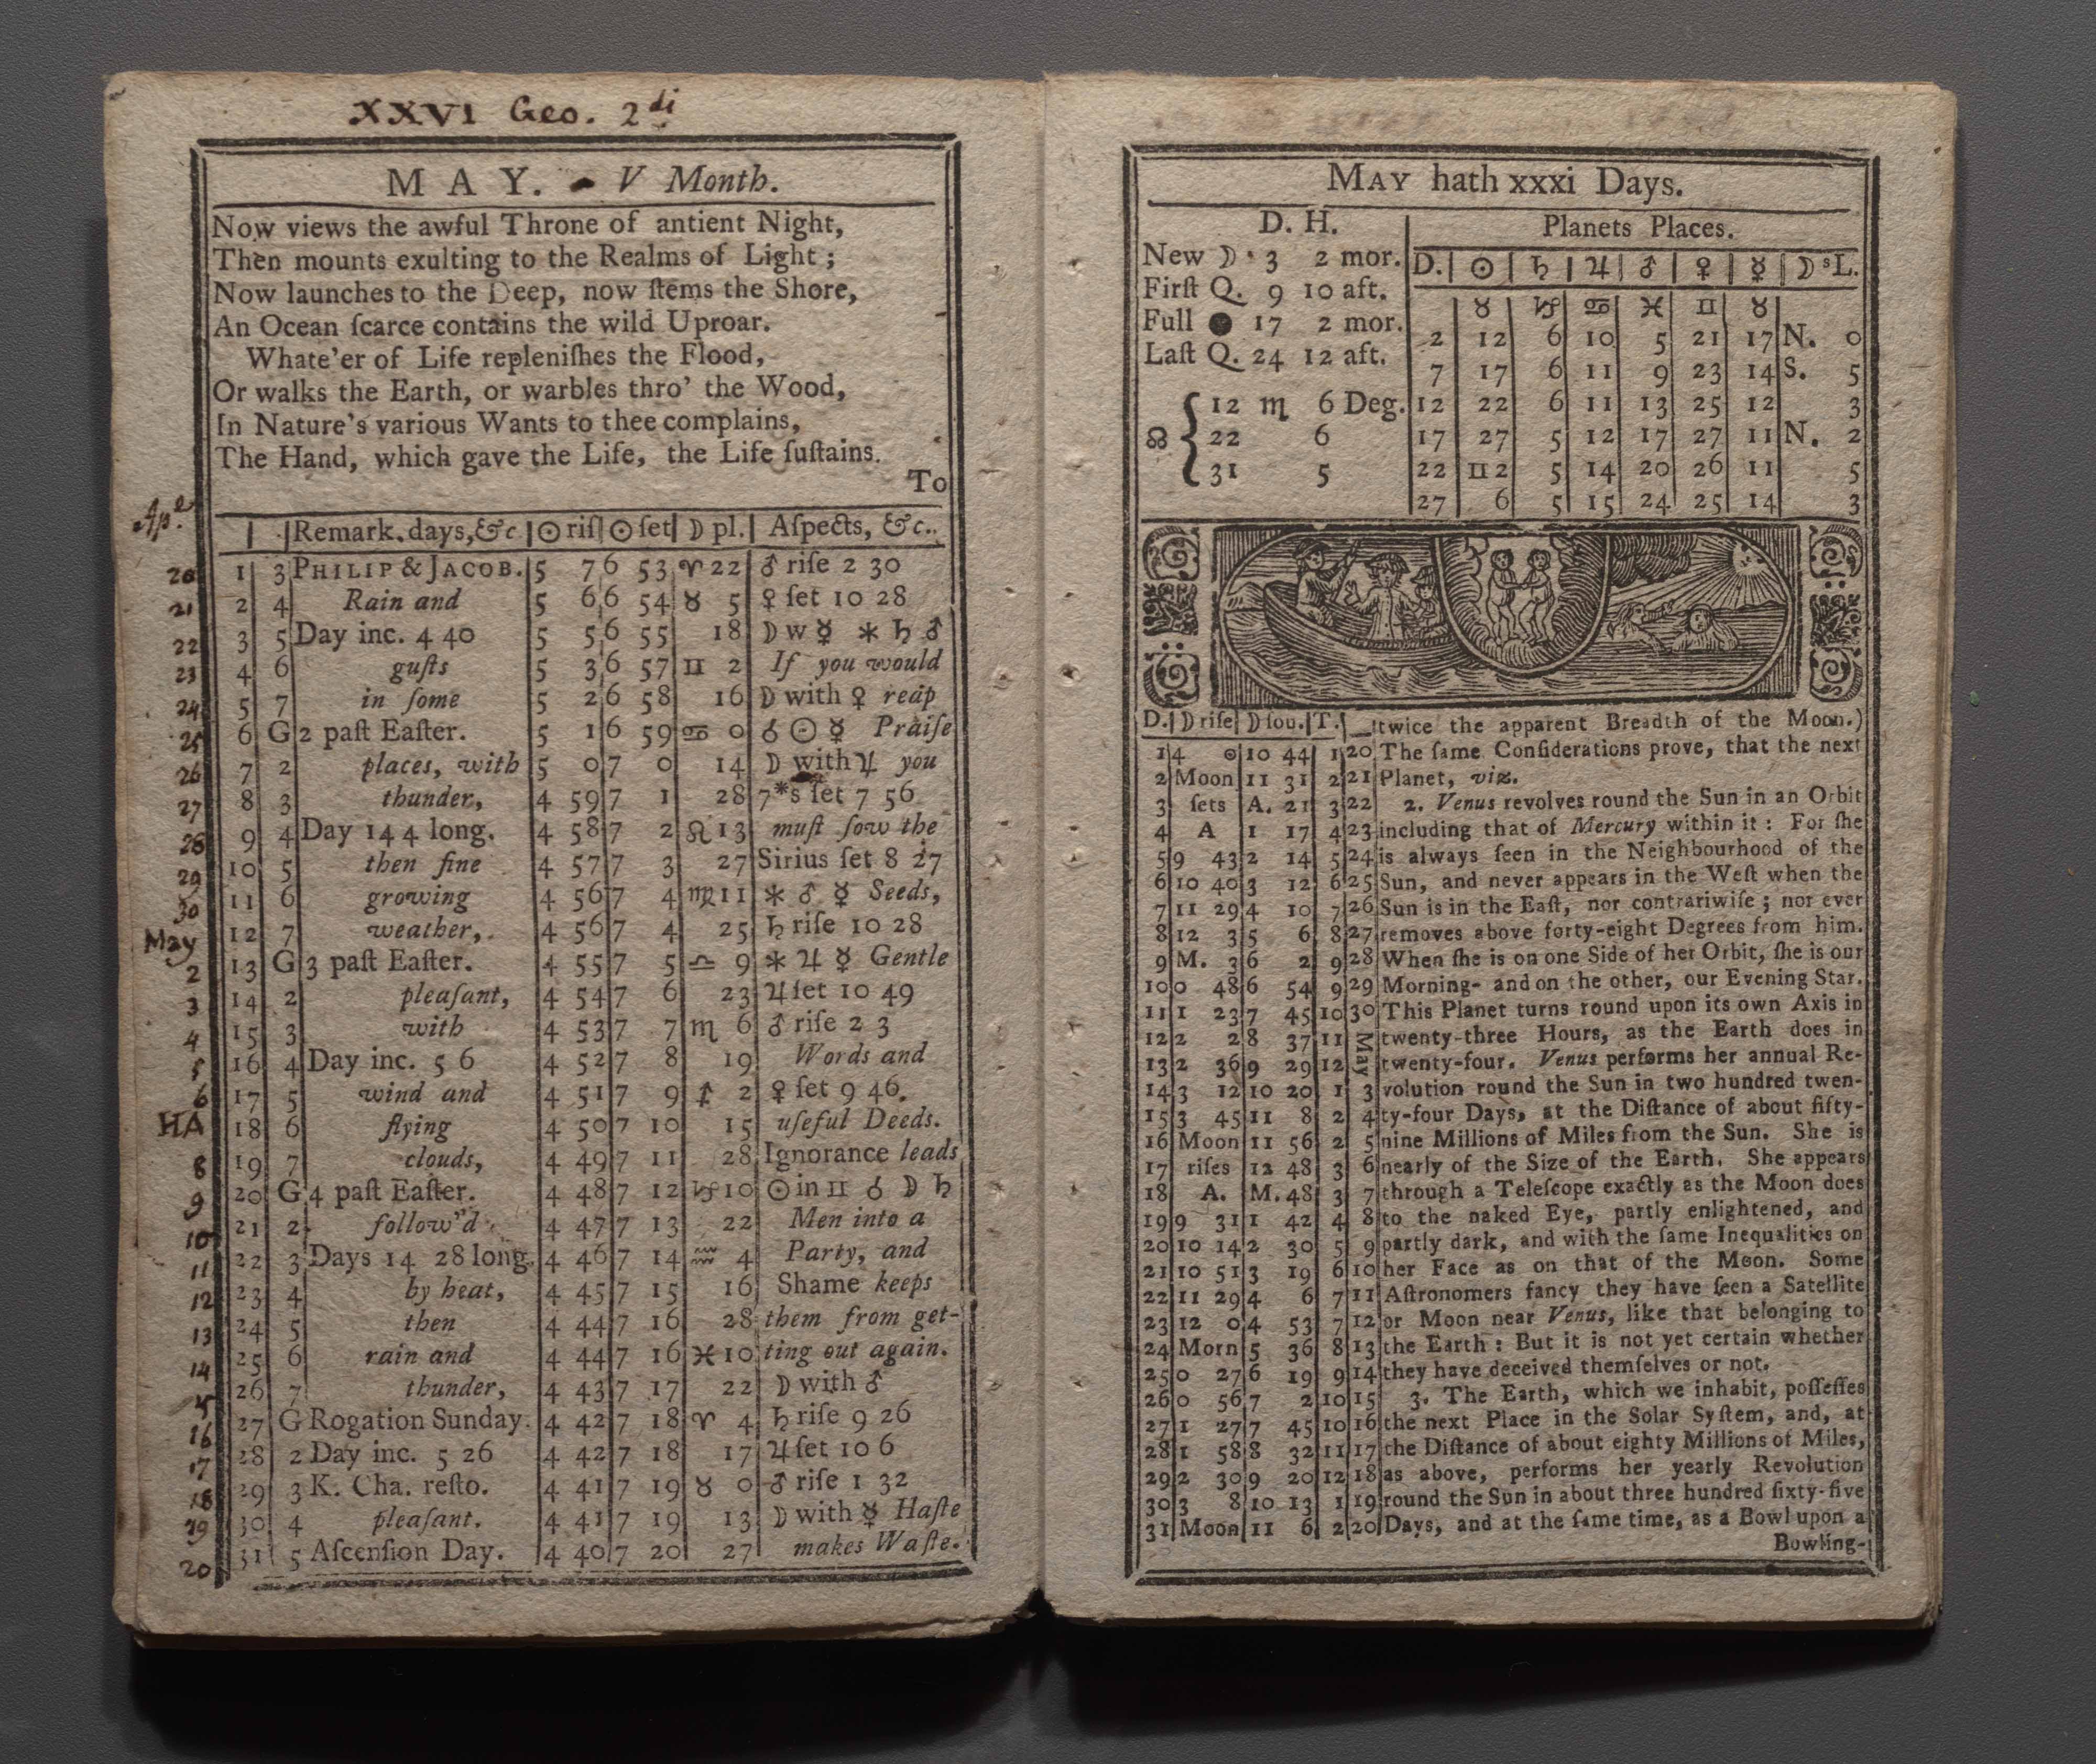 XXVI Geo. 2di
MAY. V Month.
Now views the awful Throne of antient Night,
Then mounts exulting to the Realms of Light ;
Now launches to the Deep, now ſtems the Shore,
An Ocean ſcarce contains the wild Uproar.
Whate'er of Life repleniſhes the Flood,
Or walks the Earth, or warbles thro' the Wood,
In Nature's various Wants to thee complains,
The Hand, which gave the Life, the Life ſuſtains.
To
| | |Remark. days, &c|☉ riſ|☉ ſet|☽ pl.| Aſpects, &c.
20 1 3 PHILIP & JACOB. 5 7 6 53 ♈ 22 ♂ riſe 2 30
21 2 4 Rain and 5 6 6 54 ♉ 5 ♀ ſet 10 28
22 3 5 Day inc. 4 40 5 5 6 55 18 ☽ w ☿ ✱ ♄ ♂
23 4 6 guſts 5 3 6 57 ♊ 2 If you would
24 5 7 in ſome 5 2 6 58 16 ☽ with ♀ reap
25 6 G 2 paſt Eaſter. 5 1 6 59 ♋ 0 ☌ ☉ ☿ Praiſe
26 7 2 places, with 5 0 7 0 14 ☽ with ♃ you
27 8 3 thunder, 4 59 7 1 28 7*s ſet 7 56
28 9 4 Day 14 4 long. 4 58 7 2 ♌ 13 muſt ſow the
29 10 5 then fine 4 57 7 3 27 Sirius ſet 8 27
30 11 6 growing 4 56 7 4 ♍ 11 ✱ ♂ ☿ Seeds,
May 12 7 weather, 4 56 7 4 25 ♄ riſe 10 28
2 13 G 3 paſt Eaſter. 4 55 7 5 ♎ 9 ✱ ♃ ☿ Gentle
3 14 2 pleaſant, 4 54 7 6 23 ♃ ſet 10 49
4 15 3 with 4 53 7 7 ♏ 6 ♂ riſe 2 3
5 16 4 Day inc. 5 6 4 52 7 8 19 Words and
6 17 5 wind and 4 51 7 9 ♐ 2 ♀ ſet 9 46.
HA 18 6 flying 4 50 7 10 15 uſeful Deeds.
8 19 7 clouds, 4 49 7 11 28 Ignorance leads
9 20 G 4 paſt Eaſter. 4 48 7 12 ♑ 10 ☉ in ♊ ☌ ☽ ♄
10 21 2 follow'd 4 47 7 13 22 Men into a
11 22 3 Days 14 28 long. 4 46 7 14 ♒ 4 Party, and
12 23 4 by heat, 4 45 7 15 16 Shame keeps
13 24 5 then 4 44 7 16 28 them from get-
14 25 6 rain and 4 44 7 16 ♓ 10 ting out again.
15 26 7 thunder, 4 43 7 17 22 ☽ with ♂
16 27 G Rogation Sunday. 4 42 7 18 ♈ 4 ♄ riſe 9 26
17 28 2 Day inc. 5 26 4 42 7 18 17 ♃ ſet 10 6
18 29 3 K. Cha. reſto. 4 41 7 19 ♉ 0 ♂ riſe 1 32
19 30 4 pleaſant. 4 41 7 19 13 ☽ with ☿ Haſte
20 31 5 Aſcenſion Day. 4 40 7 20 27 makes Waſte.
MAY hath xxxi Days.
D. H.
New ☽ 3 2 mor.
Firſt Q. 9 10 aft.
Full ● 17 2 mor.
Laſt Q. 24 12 aft.
☊ { 12 ♏ 6 Deg.
22 6
31 5
Planets Places.
D.| ☉ | ♄ | ♃ | ♂ | ♀ | ☿ | ☽sL.
♉ ♑ ♋ ♓ ♊ ♉
2 12 6 10 5 21 17 N. 0
7 17 6 11 9 23 14 S. 5
12 22 6 11 13 25 12 3
17 27 5 12 17 27 11 N. 2
22 ♊ 2 5 14 20 26 11 5
27 6 5 15 24 25 14 3
D.|☽ riſe|☽ ſou.|T.| twice the apparent Breadth of the Moon.)
1 4 0 10 44 1 20 The ſame Conſiderations prove, that the next
2 Moon 11 31 2 21 Planet, viz.
3 ſets A. 21 3 22 2. Venus revolves round the Sun in an Orbit
4 A 1 17 4 23 including that of Mercury within it : For ſhe
5 9 43 2 14 5 24 is always ſeen in the Neighbourhood of the
6 10 40 3 12 6 25 Sun, and never appears in the Weſt when the
7 11 29 4 10 7 26 Sun is in the Eaſt, nor contrariwiſe ; nor ever
8 12 3 5 6 8 27 removes above forty-eight Degrees from him.
9 M. 3 6 2 9 28 When ſhe is on one Side of her Orbit, ſhe is our
10 0 48 6 54 9 29 Morning- and on the other, our Evening Star.
11 1 23 7 45 10 30 This Planet turns round upon its own Axis in
12 2 2 8 37 11 May twenty-three Hours, as the Earth does in
13 2 36 9 29 12 twenty-four. Venus performs her annual Re-
14 3 12 10 20 1 3 volution round the Sun in two hundred twen-
15 3 45 11 8 2 4 ty-four Days, at the Diſtance of about fifty-
16 Moon 11 56 2 5 nine Millions of Miles from the Sun. She is
17 riſes 12 48 3 6 nearly of the Size of the Earth. She appears
18 A. M. 48 3 7 through a Teleſcope exactly as the Moon does
19 9 31 1 42 4 8 to the naked Eye, partly enlightened, and
20 10 14 2 30 5 9 partly dark, and with the ſame Inequalities on
21 10 51 3 19 6 10 her Face as on that of the Moon. Some
22 11 29 4 6 7 11 Aſtronomers fancy they have ſeen a Satellite
23 12 0 4 53 7 12 or Moon near Venus, like that belonging to
24 Morn 5 36 8 13 the Earth : But it is not yet certain whether
25 0 27 6 19 9 14 they have deceived themſelves or not.
26 0 56 7 2 10 15 3. The Earth, which we inhabit, poſſeſſes
27 1 27 7 45 10 16 the next Place in the Solar Syſtem, and, at
28 1 58 8 32 11 17 the Diſtance of about eighty Millions of Miles,
29 2 30 9 20 12 18 as above, performs her yearly Revolution
30 3 8 10 13 1 19 round the Sun in about three hundred ſixty-five
31 Moon 11 6 2 20 Days, and at the ſame time, as a Bowl upon a
Bowling-